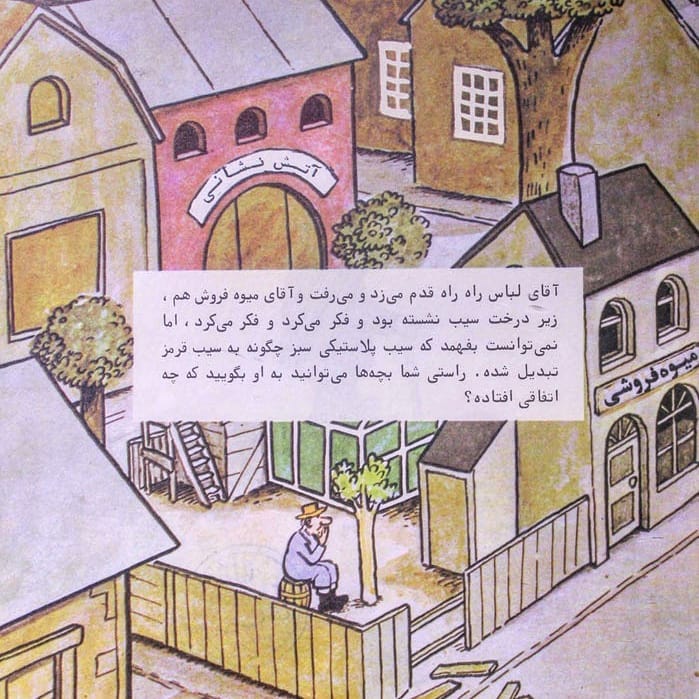 آتش نشانی
آقای لباس راه راه قدم می‌زد و می‌رفت و آقای میوه فروش هم ،
زیر درخت سیب نشسته بود و فکر می‌کرد و فکر می‌کرد ، اما
نمی‌توانست بفهمد که سیب پلاستیکی سبز چگونه به سیب قرمز
تبدیل شده . راستی شما بچه‌ها می‌توانید به او بگویید که چه
اتفاقی افتاده؟
میوه فروشی